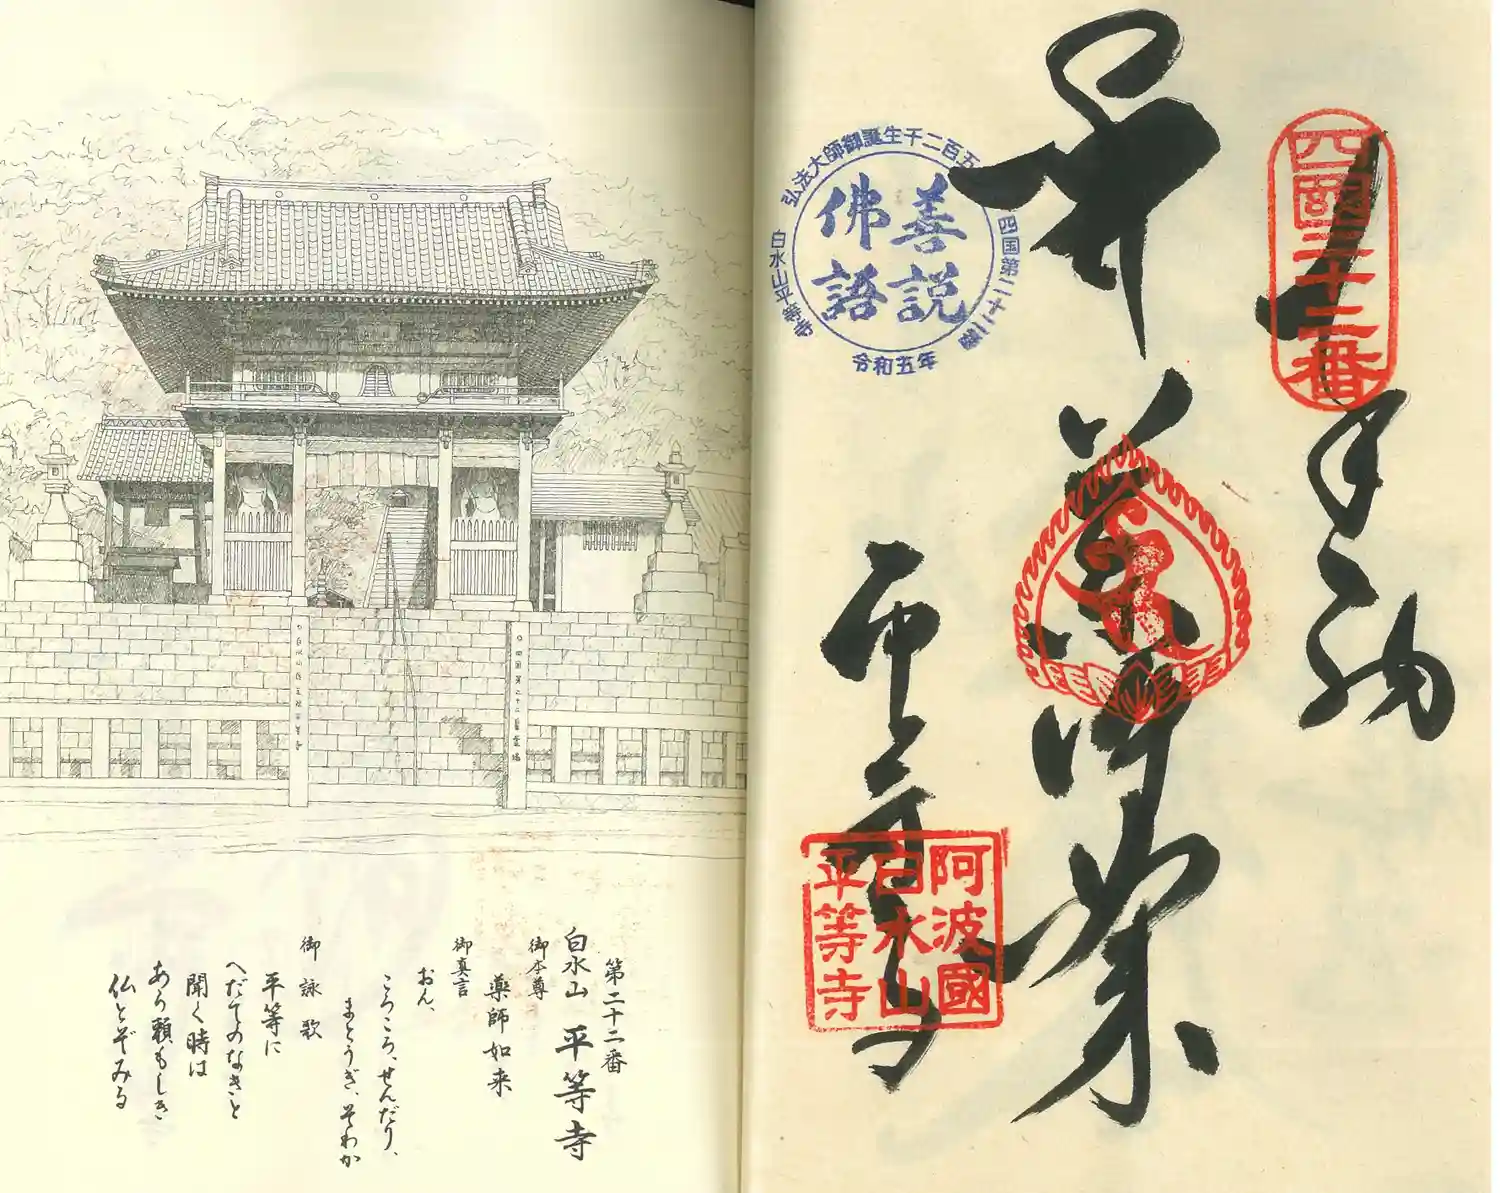 四國二十二番
奉納
薬師如来
平等寺
弘法大師御誕生千二百五
四国第二十二番
白水山平等寺
善説
佛語
令和五年
阿波國
白水山
平等寺
第二十二番
白水山 平等寺
御本尊
薬師如来
御真言
おん、
ころころ、せんだり、
まとうぎ、そわか
御詠歌
平等に
へだてのなきと
聞く時は
あら頼もしき
仏とぞみる
四国第二十二番霊場